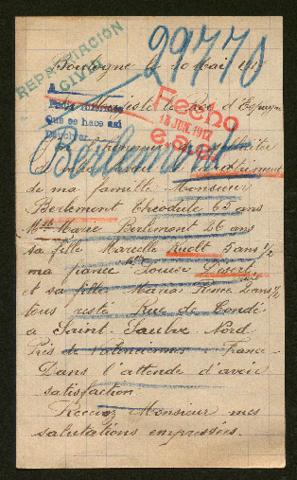 29770
REPATRIACIÓN
CIVIL
Boulogne le 10 Mai 191
A
Que se hace así
Fecha
15 JUN. 1917
Berlemont
de ma famille Monsieur
Berlemont Theodule 65 ans
Mlle Marie Berlemont 26 ans
sa fille Marcelle 5 ans 1/2
ma fiancé Louise
et sa fille Maria Renée 2 ans 1/2
tous resté Rue de Condé
a Saint-Saulve Nord
Près de Valenciennes France
Dans l'attende d'avoir
satisfaction
Recevez Monsieur mes
salutations empressées.